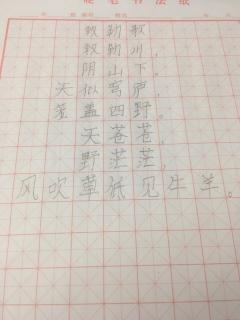 硬笔书法纸
敕勒歌
敕勒川，
阴山下。
天似穹庐，
笼盖四野。
天苍苍，
野茫茫，
风吹草低见牛羊。